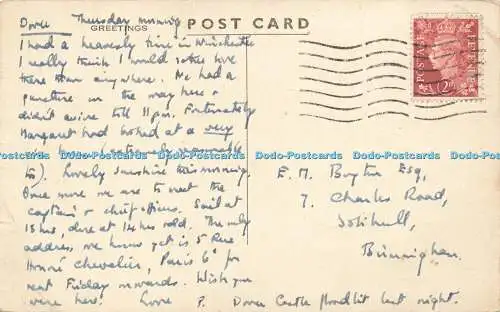 Dover Thursday morning
GREETINGS
POST CARD
I had a heavenly time in Winchester
I really think I would rather live
there than anywhere. We had a
puncture on the way here &
didn't arrive till 11pm. Fortunately
Margaret had booked at a very
nice (extremely reasonable
too). Lovely sunshine this morning.
Once more we are to meet the
captain & chief officer. Sail at
13 hrs, due at 14 hrs. The only
address we know yet is 5 Rue
Honoré Chevalier, Paris 6e for
next Friday onwards. Wish you
were here. Love P.
Dover Castle floodlit last night.
E. M. Esq,
7, Charles Road,
Solihull,
Birmingham.
POSTAGE
REVENUE
2D
Dodo-Postcards Dodo-Postcards Dodo-Postcards Dodo-Postcards Dodo-Postcards Dodo-Postcards